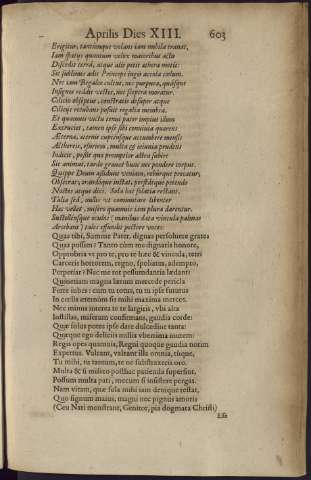 Aprilis Dies XIII. 603
Erigitur, tantumque volans iam nubila tranat,
Iam spatys quantum velox maioribus acta
Discedit terrâ, atque alis petit æthera motis:
Sic sublimis adit Principe ingis accola cœlum.
Nec iam Regalis cultus, nec purpura, quæsque
Insignes reddit vestes, nec sceptra morantur.
Cilicio obsptus, constratis desuper atque
Cilicys recubans posuit regalia membra.
Et quamvis victu tenui pater impius illum
Extruciet, tamen ipse sibi convivia quærens
Æterna, æternis cupiensque accumbere mensis
Æthereis, esuriem, multa & ieiunia prudens
Indicit, possit quo promptior astra subire
Sic animus, tardo gravet hunc nec pondere corpus.
Quippe Deum assiduus veniam, roburque precatur,
Obsecrat, orandoque instat, perstatque petendo
Noctes atque dies. Sola hac solatia restant.
Talia sed, nullis ut commutare libenter
Hac vellet, misero quamvis iam plura darentur.
Sustollensque oculos (manibus data vincula palmas
Arcebant) tales effundit pectore voces:
Quas tibi, Summe Pater, dignas persolvere grates
Quas possim? Tanto cùm me dignaris honore,
Opprobria vt pro te, pro te hæc & vincula, tetri
Carceris horrorem, regno, spoliatus, adempto,
Perpetiar? Nec me tot pessumdantia lædant?
Quinetiam magna latum mercede pericla
Ferre iubes? cum tu totus, tu tu ipse futurus
In cœlis æternùm sis mihi maxima merces.
Nec minus interea te te largiris, vbi alta
Instillas, miserum confirmans, gaudia corde:
Quæ solus potes ipse dare dulcedine tanta:
Quæque ego deliciis millia vberiora inuenti
Regis opes quamuis, Regni quoque gaudia notim
Expertus. Valeant, valeant illa omnia, túque,
Tu mihi, tu tantum, te ne substraxeris oro.
Multa & si misero posthac patienda supersint,
Possum multa pati, mecum si insistere pergas.
Nam vitam, quæ sola mihi iam denique restat,
Quo signum maius, magni nec pignus amoris
(Ceu Nati monstrant, Genitor, pia dogmata Christi)